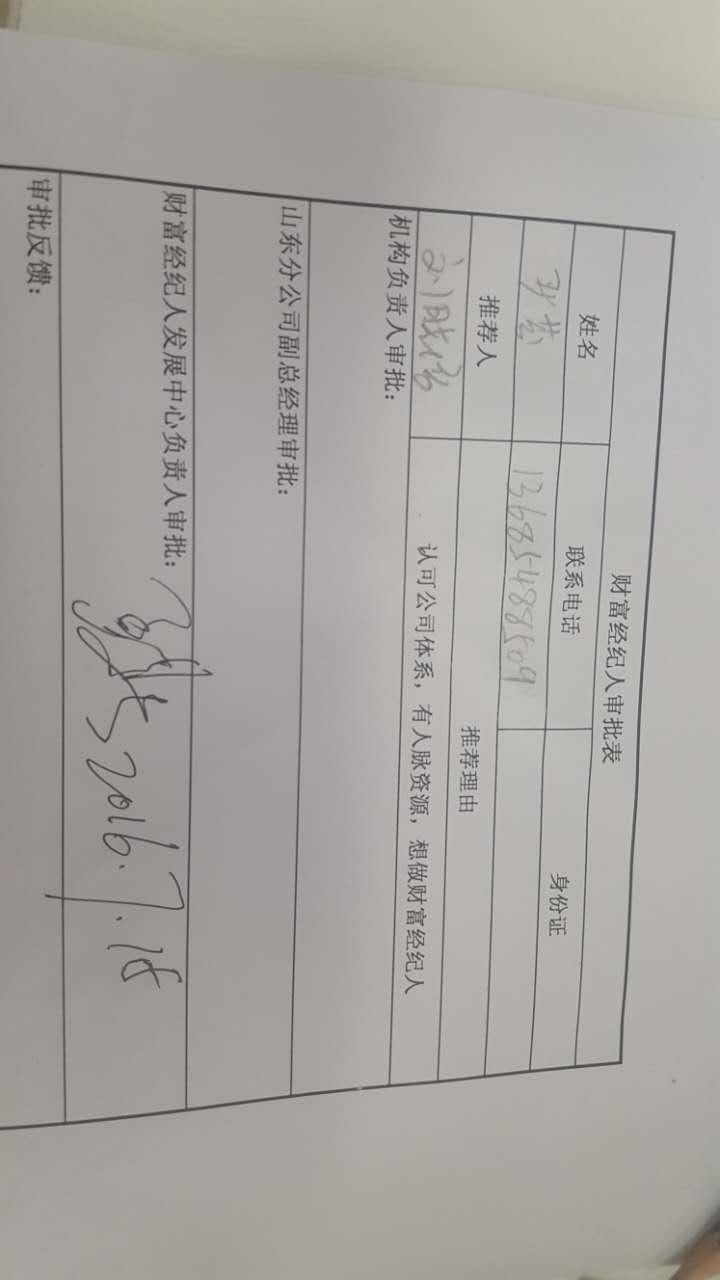 财富经纪人审批表
姓名 联系电话 身份证
13685488509
推荐人 推荐理由
刘胜 认可公司体系，有人脉资源，想做财富经纪人
机构负责人审批：
山东分公司副总经理审批：
财富经纪人发展中心负责人审批：
2016.7.18
审批反馈：